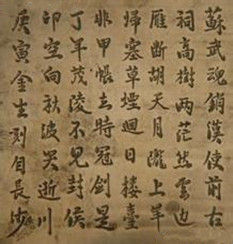 蘇武魂銷漢使前古
祠高樹兩茫然雲边
雁断胡天月隴上羊
歸塞草煙迴日樓臺
非甲帳去時冠劍是
丁年茂陵不見封侯
印空向秋波哭逝川
庚寅金生刻長沙